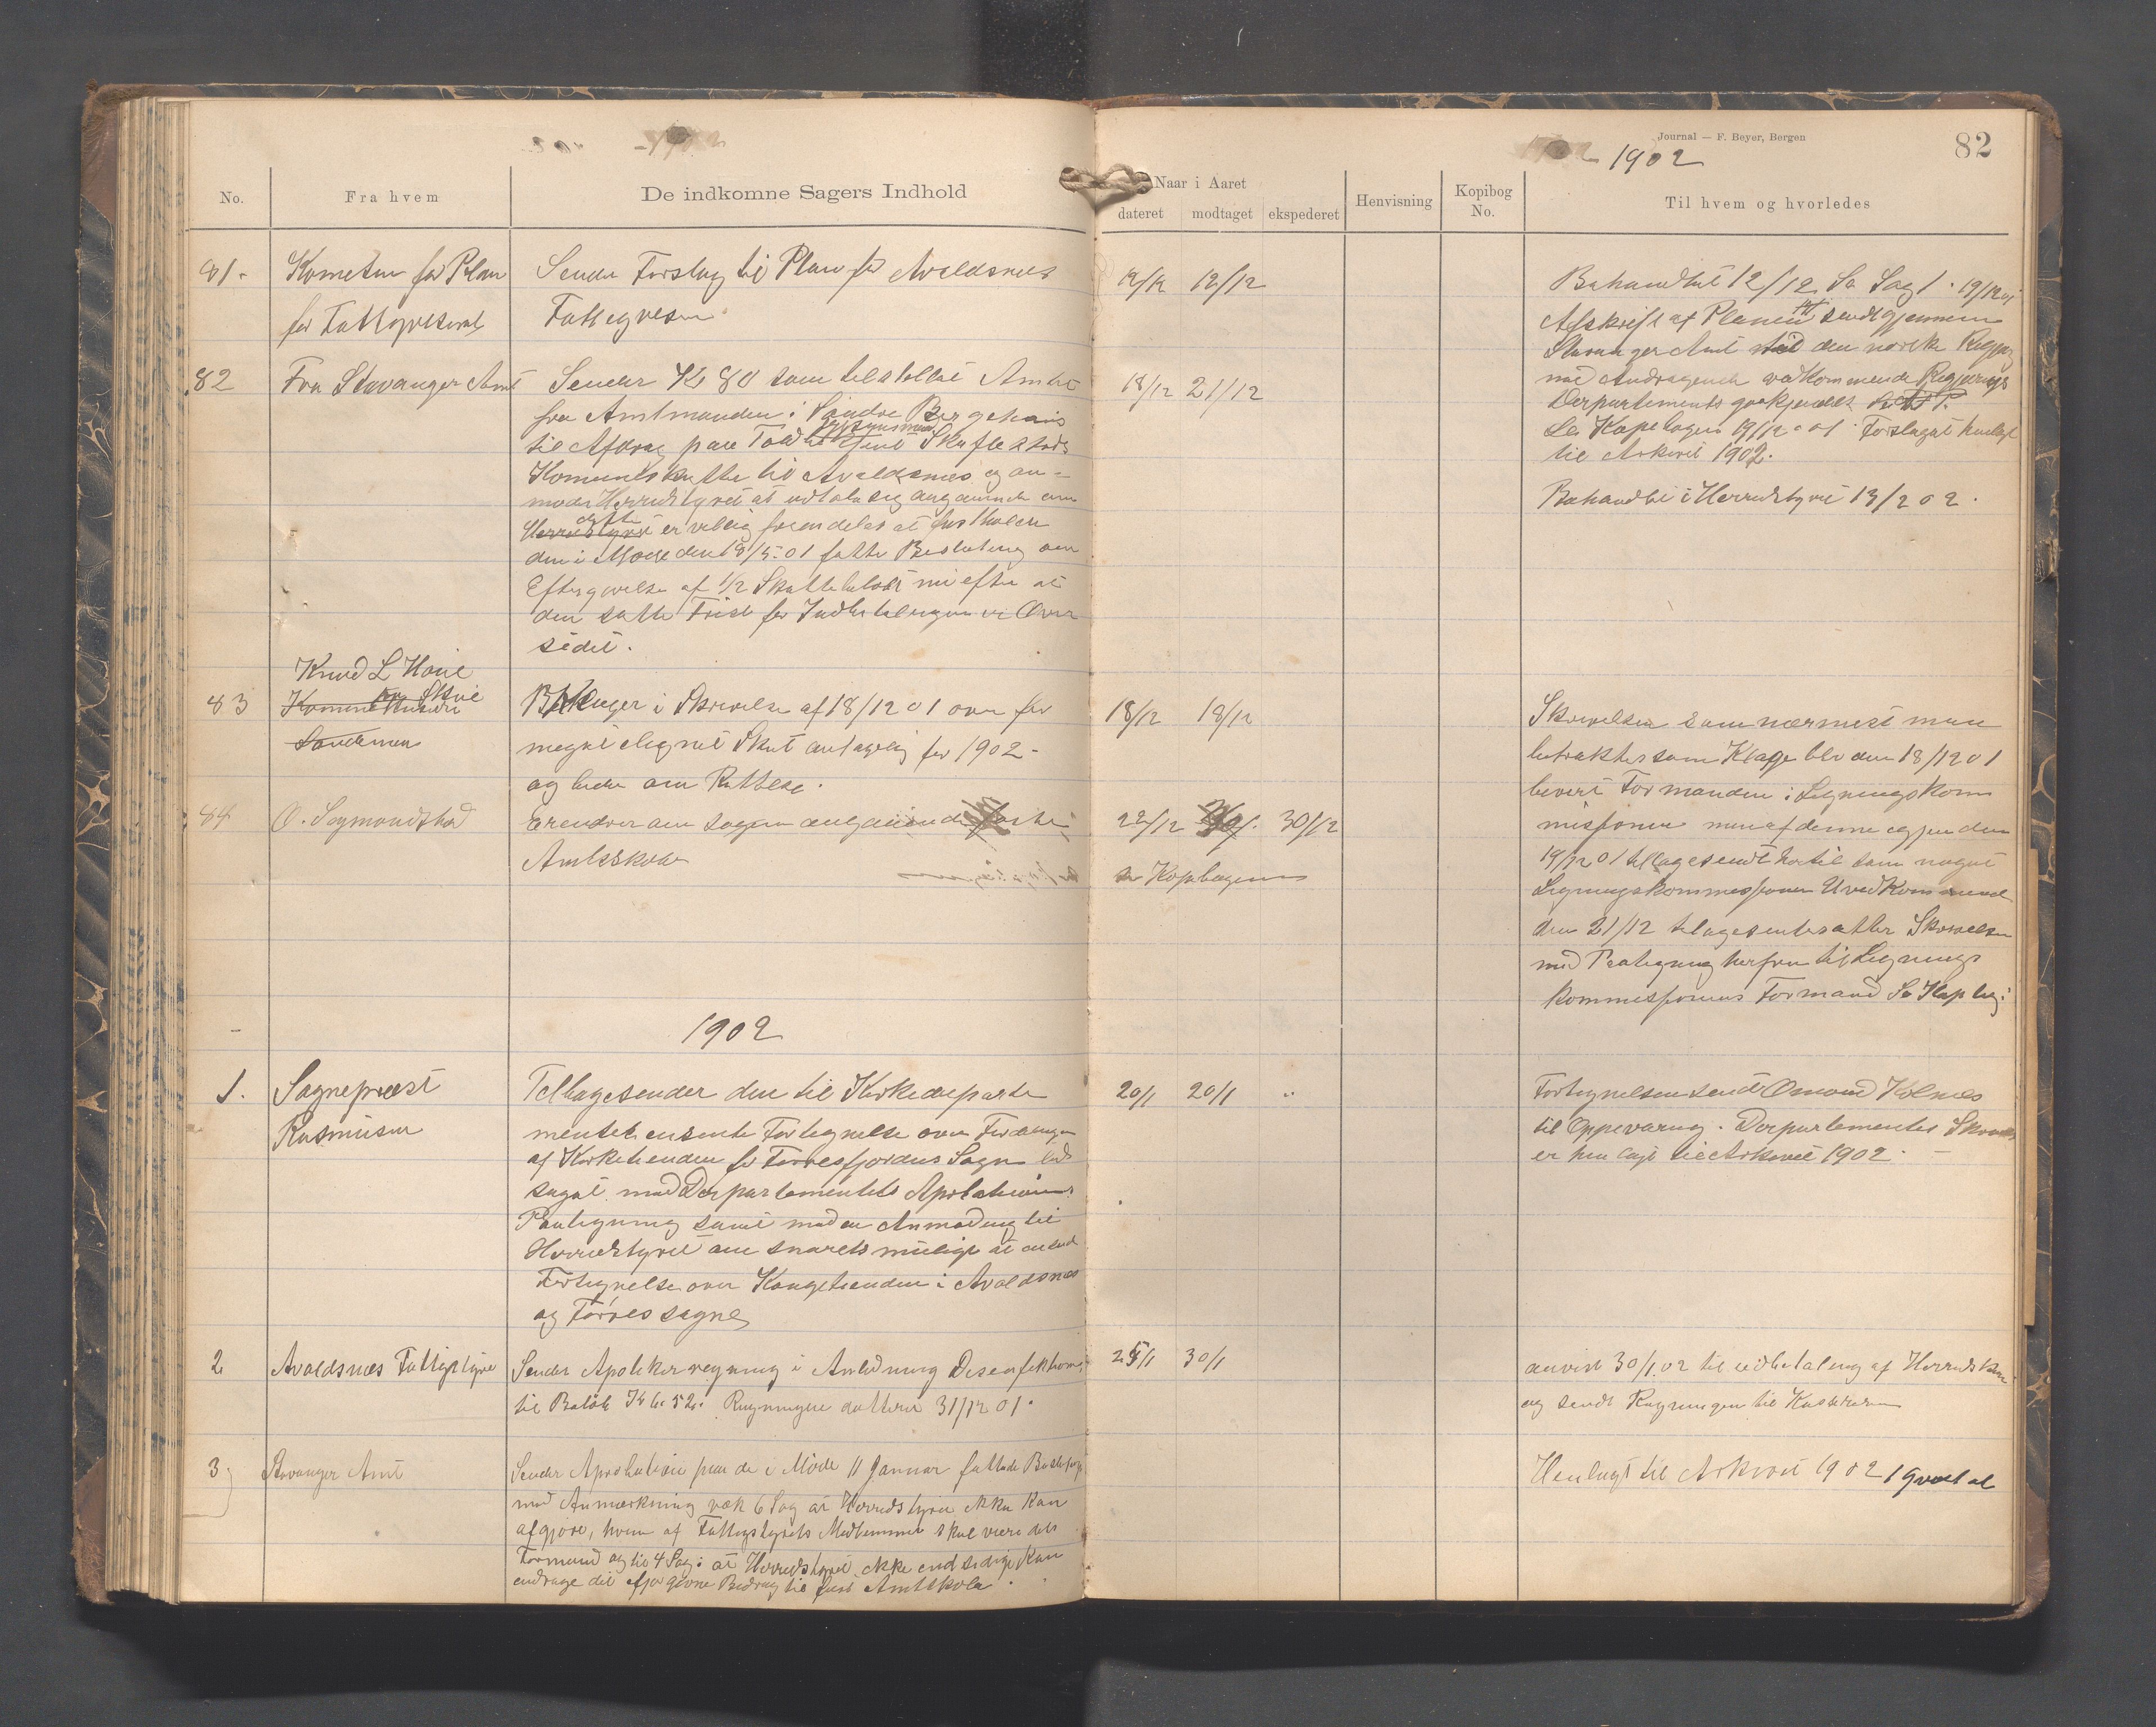 Journal — F. Beyer, Bergen
82
1902
No.
Fra hvem
De indkomne Sagers Indhold
Naar i Aaret
dateret
modtaget
ekspederet
Henvisning
Kopibog No.
Til hvem og hvorledes
81.
for Plan
for Fattigvesenet
Sender Forslag til Plan for Avaldsnes
Fattigvesen
12/12
Behandlet 12/12. Se Sag 1. 19/12 01
Afskrift af Planen sendt gjennem
Stavanger Amt til den norske
med Andragende vedkommende Regjerings
Departements godkjendelse
Se Kopibogen 19/12 01. Forslaget henlagt
til Arkivet 1902.
82
Fra Stavanger Amt
Sender Kr 80 som tilstillet Amtet
fra Amtmanden i Søndre Bergenhus
til Afdrag paa
Komuneskatter til Avaldsnes og an-
moder Herredstyret at udtale sig angaaende om
Herredstyret er villig fremdeles at fastholde
den i Møde den 18/5 01 fatte Beslutning om
Eftergivelse af 1/2 Skattebeløbet nu efter at
den satte Frist for Indbetalingen er Over
sidet.
18/12 21/12
Behandlet i Herredstyret 13/2 02.
83
Knud L Havie
Beklager i Skrivelse af 18/12 01 over for
meget lignet Skat antagelig for 1902 -
og beder om Rettelse.
18/12 18/12
Skrivelsen som nærmest man
betrakter som Klage blev den 18/12 01
levert Formanden i Ligningskom
missionen men af denne igjen den
19/12 01 tilbagesendt hertil som noget
Ligningskommissionen Uvedkommende
den 21/12 tilbagesendes atter Skrivelsen
med Paategning herfra til Lignings
kommissionens Formand Se Kopibog:
84
O. Sagmondstad
Erindrer om Sagen angaaende
Amtsskole
22/12 30/12
se Kopibogen
1902
1.
Sogneprest
Rasmussen
Tilbagesender den til Kirkedeparte
mentet ensendte Fortegnelse over
af Kirketienden for Førresfjordens Sogn
med Departementets Aprobations
Paategning samt med en Anmodning til
Herredstyret om snarest mulig at ensende
Fortegnelse over Kongetienden i Avaldsnes
og Førres sogne
20/1 20/1 "
Fortegnelsen sendt Omund Kolnes
til Oppevaring. Departementets
er henlagt til Arkivet 1902. —
2
Avaldsnes Fattigstyre
Sender Apotekerregning i Anledning Desenfektion
til Beløb Kr 6.52. Regningen datteret 31/12 01.
25/1 30/1
anvist 30/1.02 til udbetaling af Herredskas
og sendt Regningen til Kassereren
3
Stavanger Amt
Sender Aprobation paa de i Møde 11 Januar fattede Beslutninger
med Anmærkning ved 6 Sag at Herredstyret ikke kan
afgjøre, hvem af Fattigstyrets Medlemmer skal være dets
Formand og til 4 Sag: at Herredstyret ikke endsidig kan
Amtskole.
Henlagt til Arkivet 1902 1 Qvartal